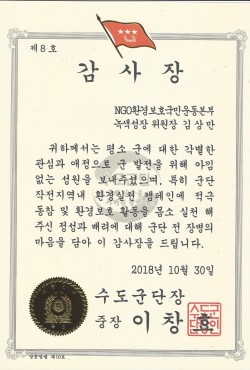 제 8 호
감 사 장
NGO환경보호국민운동본부
녹색성장 위원장 김상만
귀하께서는 평소 군에 대한 각별한
관심과 애정으로 군 발전을 위해 아낌
없는 성원을 보내주셨으며, 특히 군단
작전지역내 환경실천 캠페인에 적극
동참 및 환경보호 활동을 몸소 실천 해
주신 정성과 배려에 대해 군단 전 장병의
마음을 담아 이 감사장을 드립니다.
2018년 10월 30일
수도군단장
중장 이 창 효